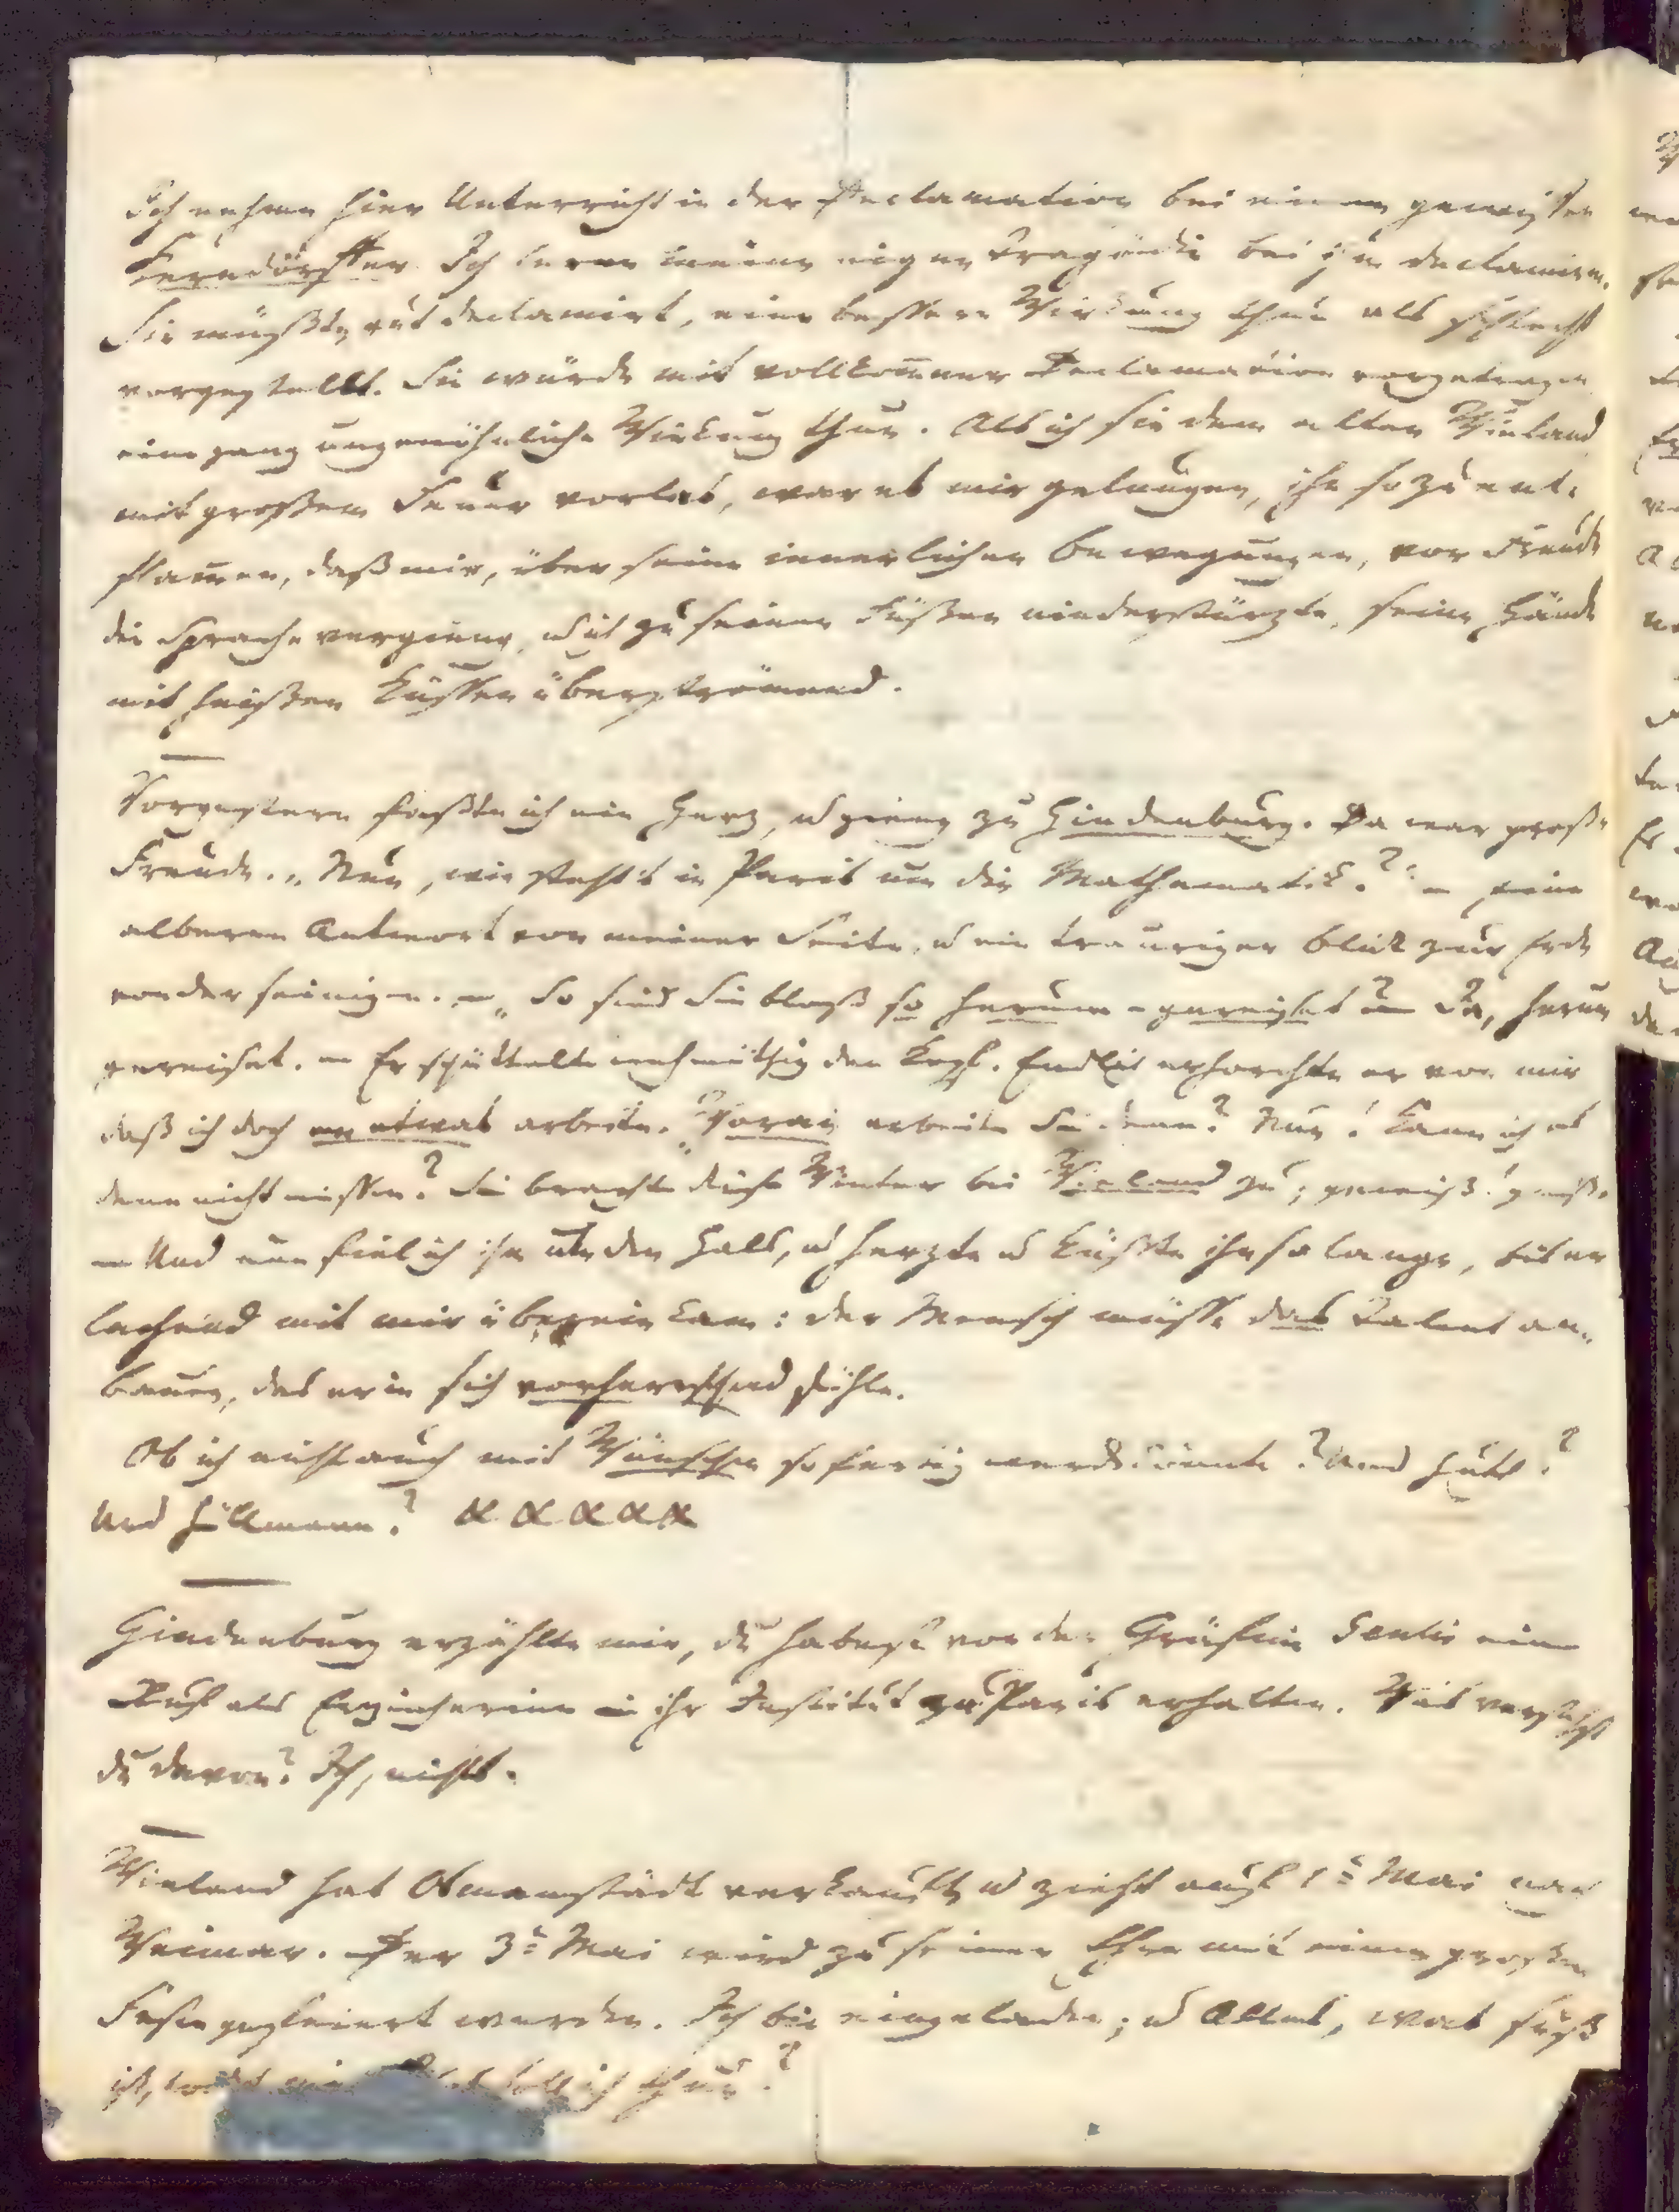 Ich nehme hier Unterricht in der Declamation bei einem gewissen
Kerndörffer. Ich lerne meine eigne Tragödie bei ihm declamiren.
Sie müßte, gut declamirt, eine bessere Wirkung thun als schlecht
vorgestellt. Sie würde mit vollkommner Declamation vorgetragen
eine ganz ungewöhnliche Wirkung thun. Als ich sie dem alten Wieland
mit großem Feuer vorlas, war es mir gelungen, ihn so zu ent-
flammen, daß mir, über seine innerlichen Bewegungen, vor Freude
die Sprache vergieng, u ich zu seinen Füßen niederstürzte, seine Hände
mit heißen Küssen überströmend.
Vorgestern faßte ich ein Herz, u gieng zu Hindenburg. Da war große
Freude. „Nun, wie steht's in Paris um die Mathematik?" — eine
alberne Antwort von meiner Seite, u ein trauriger Blick zur Erde
von der seinigen. — „So sind Sie bloß so herum-gereiset? — Ja, herum
gereiset. — Er schüttelte wehmüthig den Kopf. Endlich erhorchte er von mir
daß ich doch an etwas arbeite. „Woran arbeiten Sie denn? Nun! Kann ich es
denn nicht wissen? Sie brachten diesen Winter bei Wieland zu; gewiß! gewiß.
— Und nun fiel ich ihm um den Hals, u herzte u küßte ihn so lange, bis er
lachend mit mir überein kam: der Mensch müsse das Talent an-
bauen, das er in sich vorherrschend fühle.
Ob ich nicht auch mit Wünschen so fertig werden könnte? Und Huth?
Und Hüllmann? x x x x x
Hindenburg erzählte mir, du habest von der Gräfinn Genlis einen
Ruf als Erzieherinn in ihr Institut zu Paris erhalten. Was verstehst
du davon? Ich, nichts.
Wieland hat Osmanstädt verkauft, u zieht auf 1ᵗ Mai nach
Weimar. Der 3ᵗ Mai wird zu seiner Ehre mit einem großen
Feste gefeiert werden. Ich bin eingeladen; u Alles, was süß
ist, lockt mich. Was soll ich thun?